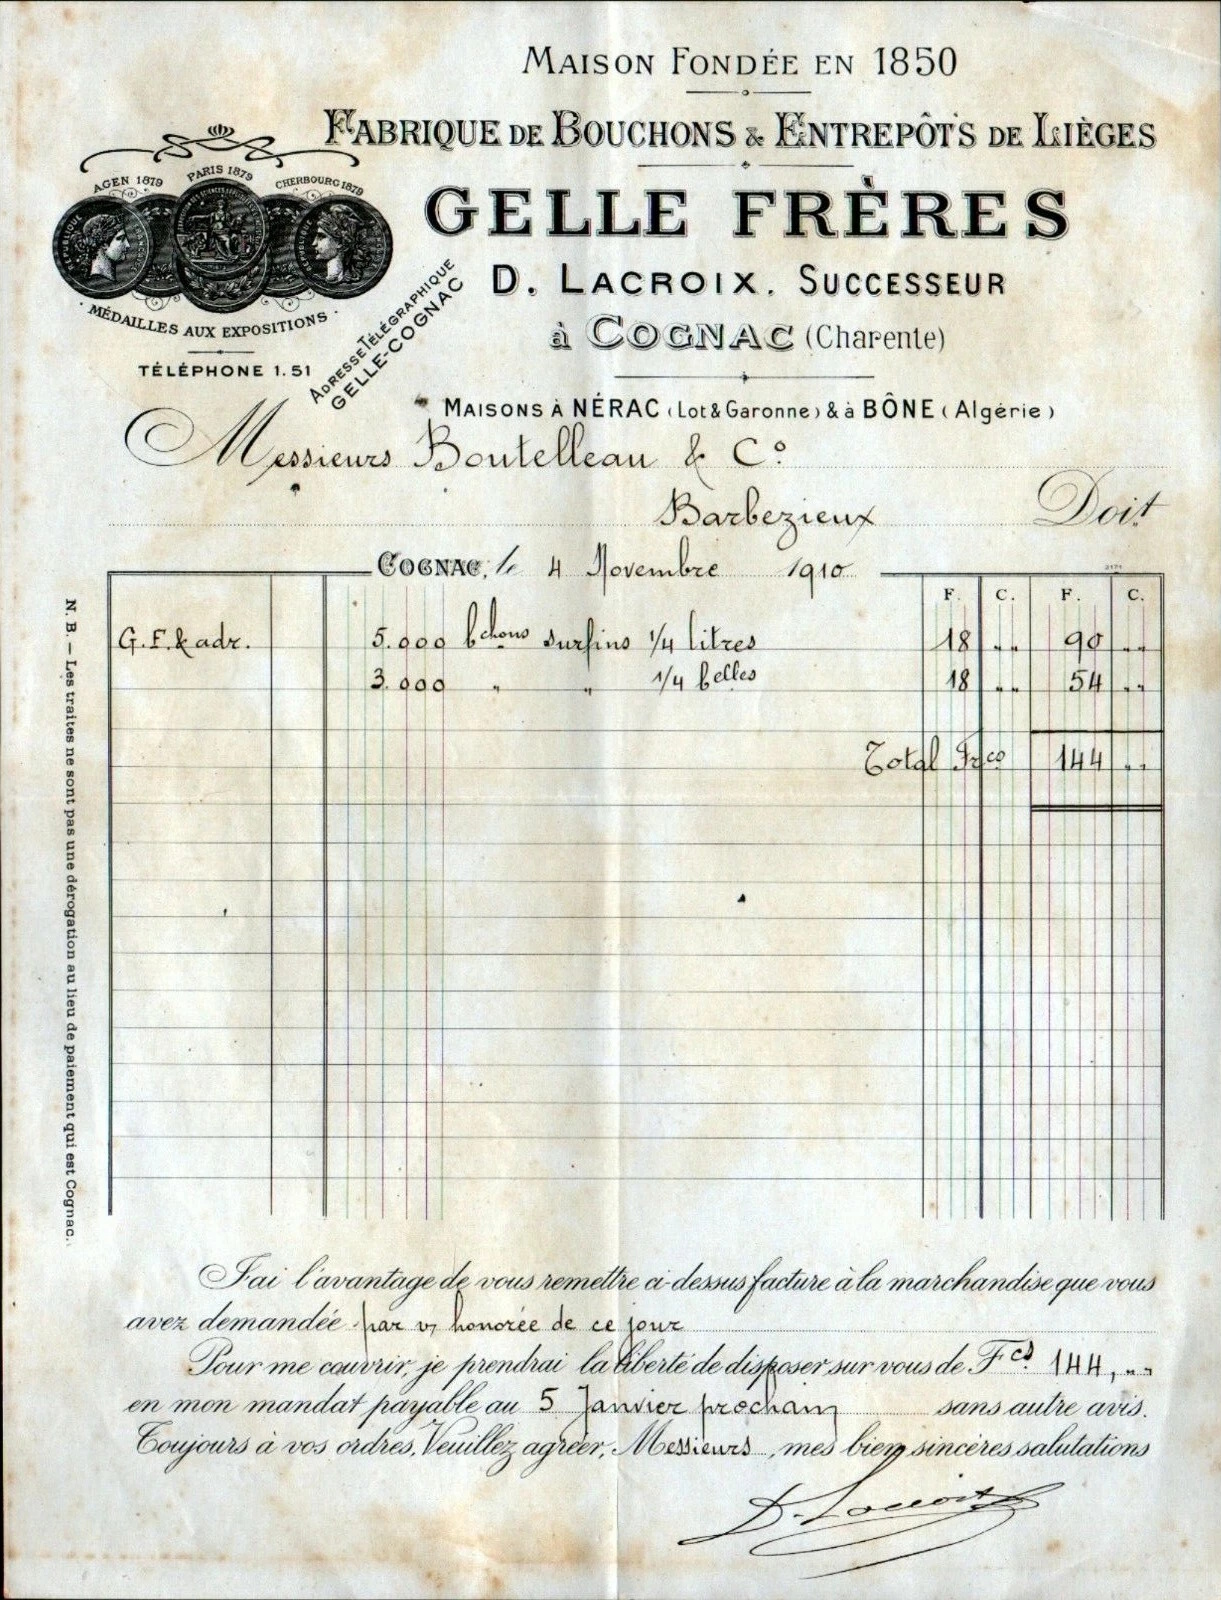 MAISON FONDÉE EN 1850
FABRIQUE DE BOUCHONS & ENTREPÔTS DE LIÈGES
AGEN 1879 PARIS 1879 CHERBOURG 1879
GELLE FRÈRES
D. LACROIX. SUCCESSEUR
à COGNAC (Charente)
· MÉDAILLES AUX EXPOSITIONS ·
TÉLÉPHONE 1.51
ADRESSE TÉLÉGRAPHIQUE
GELLE-COGNAC
MAISONS À NÉRAC (Lot & Garonne) & à BÔNE (Algérie)
Messieurs Boutelleau & Co
Barbezieux Doit
COGNAC, le 4 Novembre 1910
F. C. F. C.
G.F. & adr. 5.000 bchons surfins 1/4 litres 18 ,, 90 ,,
3.000 " " 1/4 belles 18 ,, 54 ,,
Total Frco 144 ,,
N.B. — Les traites ne sont pas une dérogation au lieu de paiement qui est Cognac.
J'ai l'avantage de vous remettre ci-dessus facture à la marchandise que vous
avez demandée par v/ honorée de ce jour
Pour me couvrir, je prendrai la liberté de disposer sur vous de Fcs 144, ,,
en mon mandat payable au 5 Janvier prochain sans autre avis.
Toujours à vos ordres, Veuillez agréer, Messieurs, mes bien sincères salutations
D. Lacroix